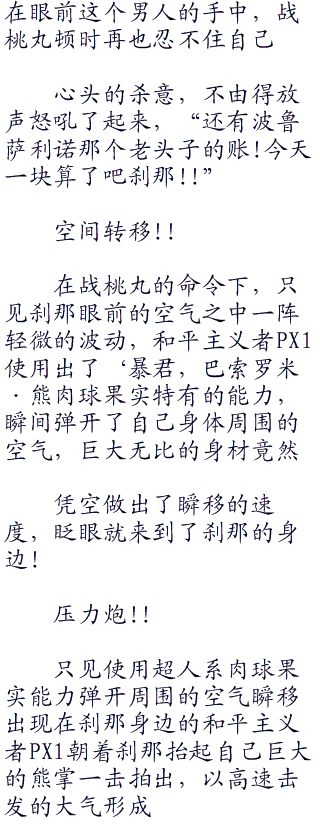 在眼前这个男人的手中，战
桃丸顿时再也忍不住自己
心头的杀意，不由得放
声怒吼了起来，“还有波鲁
萨利诺那个老头子的账!今天
一块算了吧刹那!!”
空间转移!!
在战桃丸的命令下，只
见刹那眼前的空气之中一阵
轻微的波动，和平主义者PX1
使用出了‘暴君，巴索罗米
·熊肉球果实特有的能力，
瞬间弹开了自己身体周围的
空气，巨大无比的身材竟然
凭空做出了瞬移的速
度，眨眼就来到了刹那的身
边!
压力炮!!
只见使用超人系肉球果
实能力弹开周围的空气瞬移
出现在刹那身边的和平主义
者PX1朝着刹那抬起自己巨大
的熊掌一击拍出，以高速击
发的大气形成